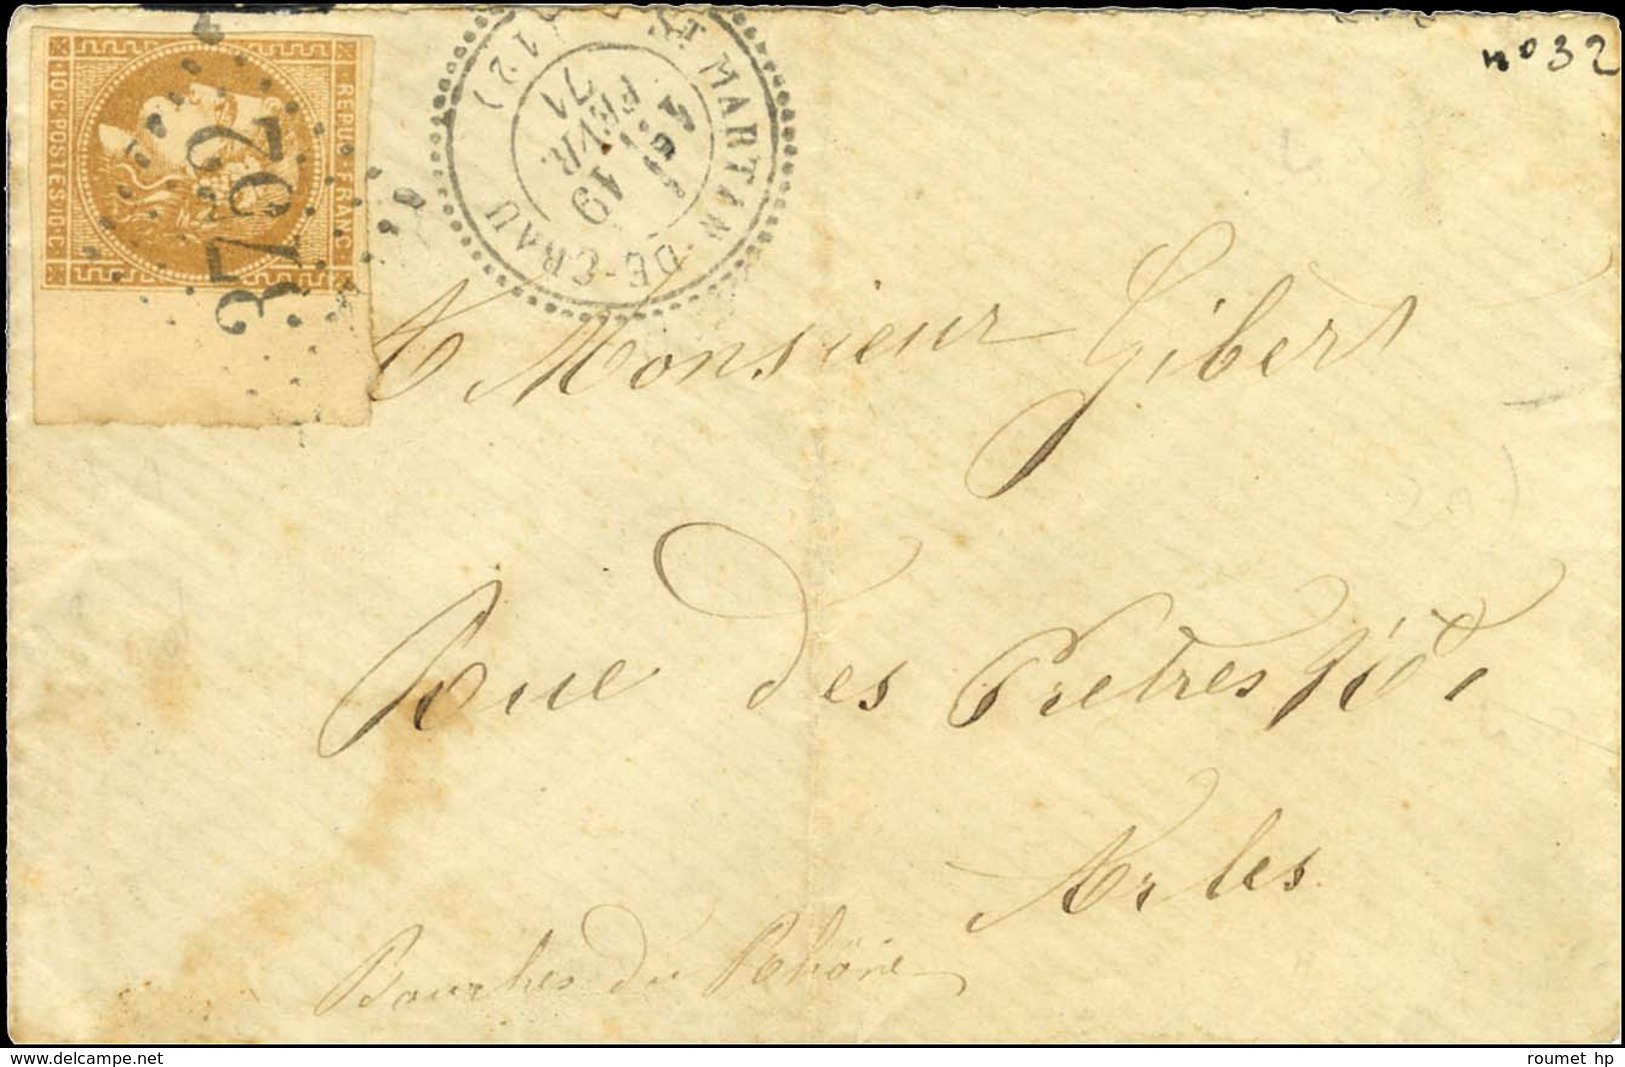 nº 32
REPUB. FRANC.
10.C.POSTES.10.C.
3762
ST MARTIN-DE-CRAU (12)
19
FEVR.
71
A Monsieur Gibert
Rue des Pretres
Arles
Bouches du Rhône
www.delcampe.net
roumet hp